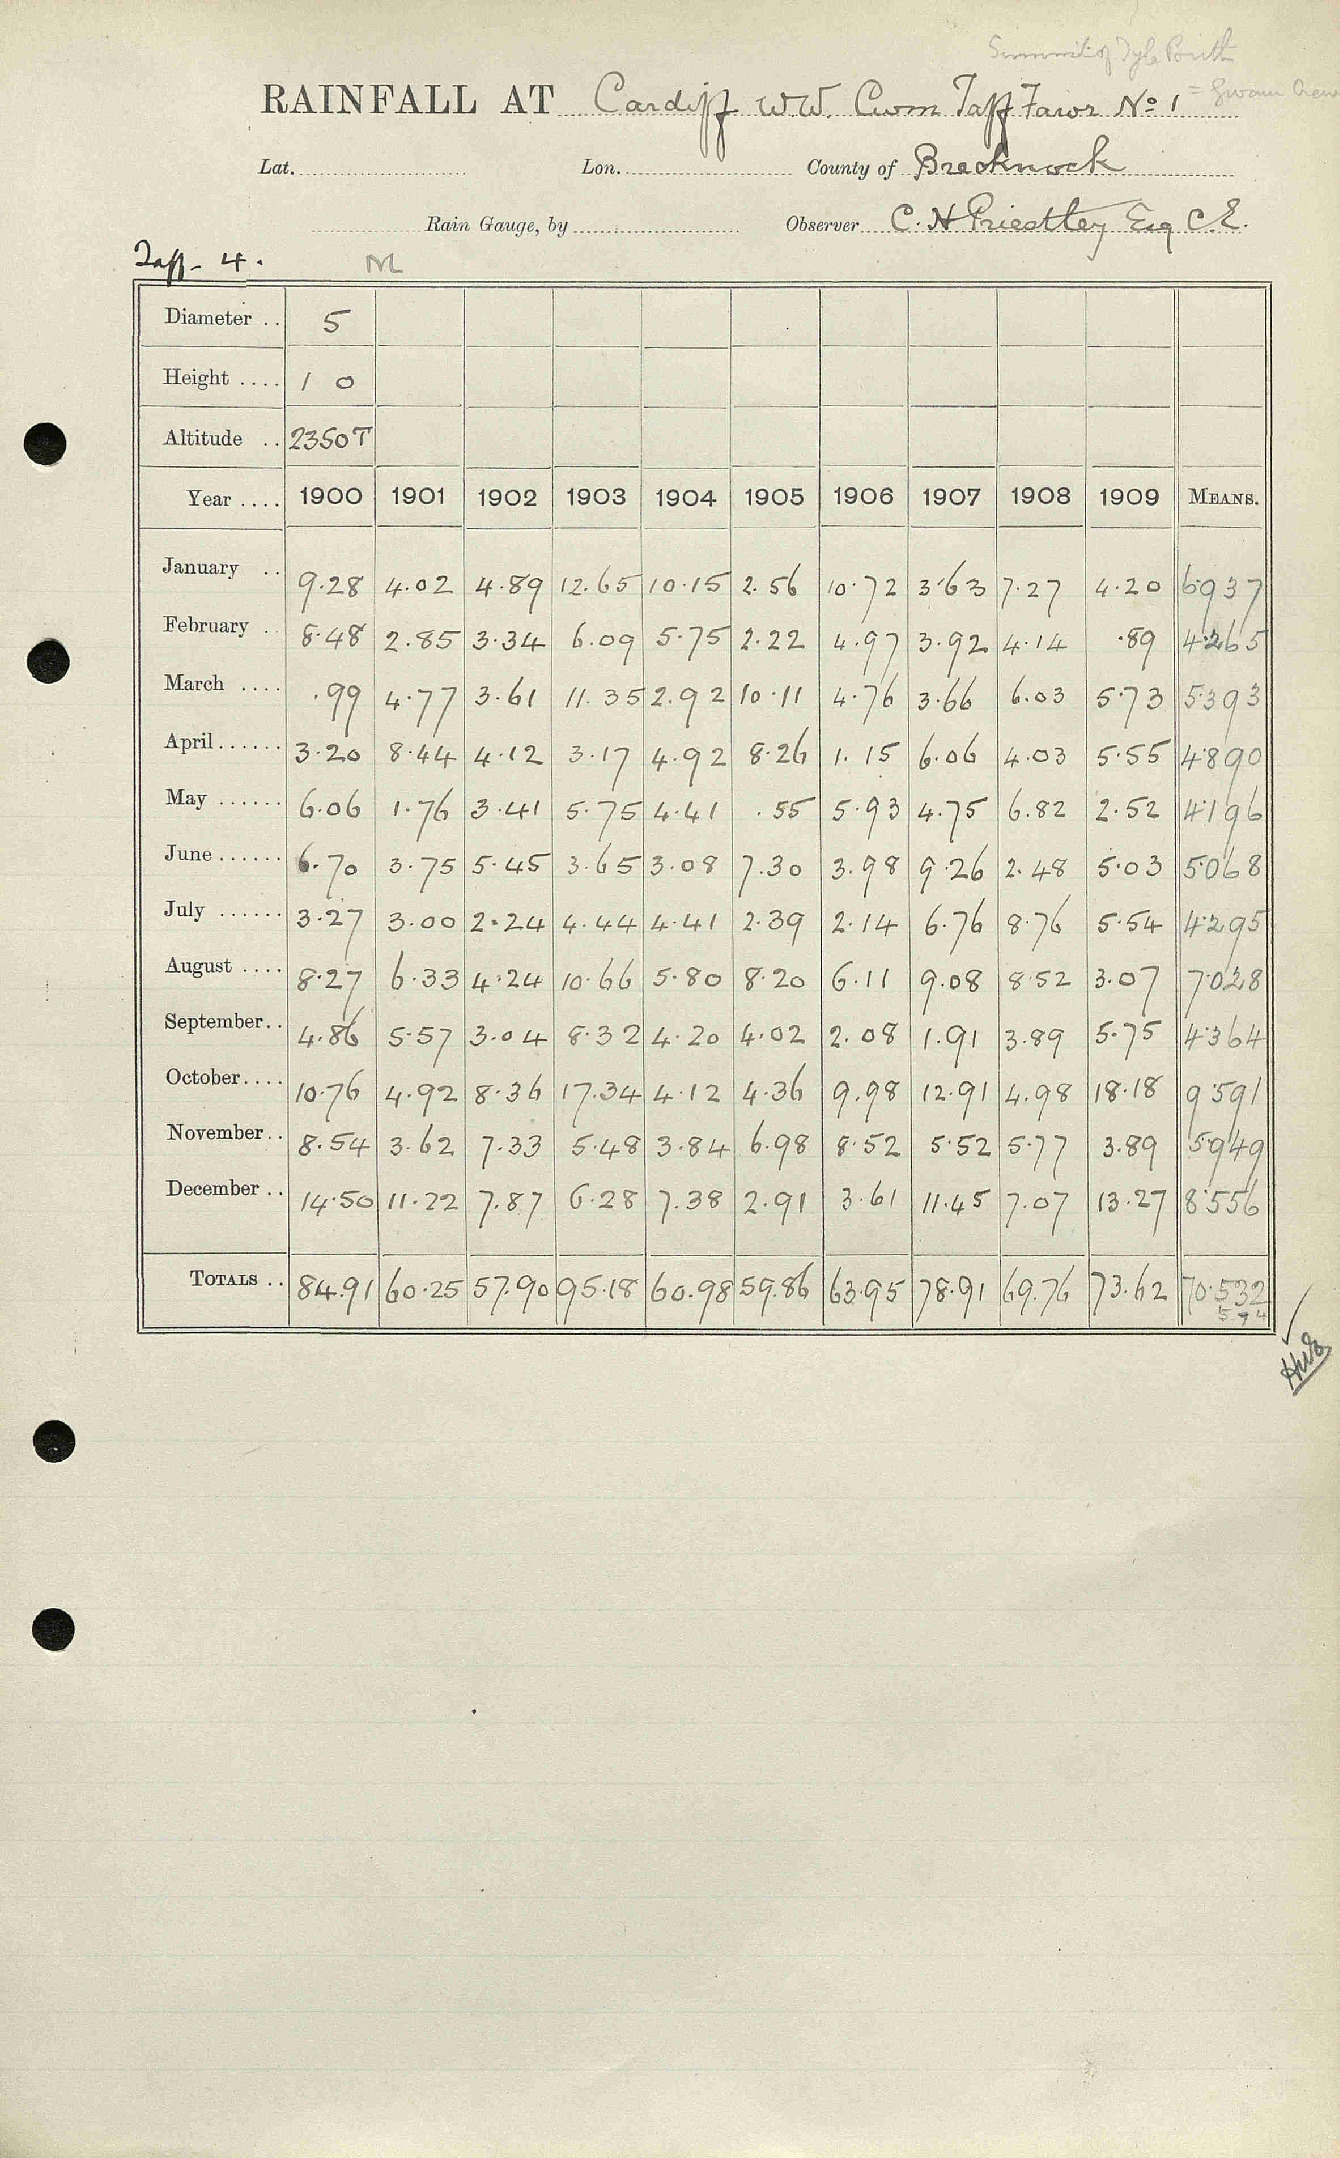 Summit of Tyle Brith
RAINFALL AT Cardiff W.W. Cwm Taff Fawr No 1
Lat. Lon. County of Brecknock
Rain Gauge, by Observer C. H Priestley Esq C.E.
Taff - 4. M
Diameter .. 5
Height .... 1 0
Altitude .. 2350T
Year .... 1900 1901 1902 1903 1904 1905 1906 1907 1908 1909 MEANS.
January .. 9.28 4.02 4.89 12.65 10.15 2.56 10.72 3.63 7.27 4.20 6.937
February .. 8.48 2.85 3.34 6.09 5.75 2.22 4.97 3.92 4.14 .89 4.265
March .... .99 4.77 3.61 11.35 2.92 10.11 4.76 3.66 6.03 5.73 5.393
April...... 3.20 8.44 4.12 3.17 4.92 8.26 1.15 6.06 4.03 5.55 4.890
May ...... 6.06 1.76 3.41 5.75 4.41 .55 5.93 4.75 6.82 2.52 4.196
June...... 6.70 3.75 5.45 3.65 3.08 7.30 3.98 9.26 2.48 5.03 5.068
July ...... 3.27 3.00 2.24 4.44 4.41 2.39 2.14 6.76 8.76 5.54 4.295
August .... 8.27 6.33 4.24 10.66 5.80 8.20 6.11 9.08 8.52 3.07 7.028
September.. 4.86 5.57 3.04 8.32 4.20 4.02 2.08 1.91 3.89 5.75 4.364
October.... 10.76 4.92 8.36 17.34 4.12 4.36 9.98 12.91 4.98 18.18 9.591
November.. 8.54 3.62 7.33 5.48 3.84 6.98 8.52 5.52 5.77 3.89 5.949
December .. 14.50 11.22 7.87 6.28 7.38 2.91 3.61 11.45 7.07 13.27 8.556
TOTALS .. 84.91 60.25 57.90 95.18 60.98 59.86 63.95 78.91 69.76 73.62 70.532
5 7 4